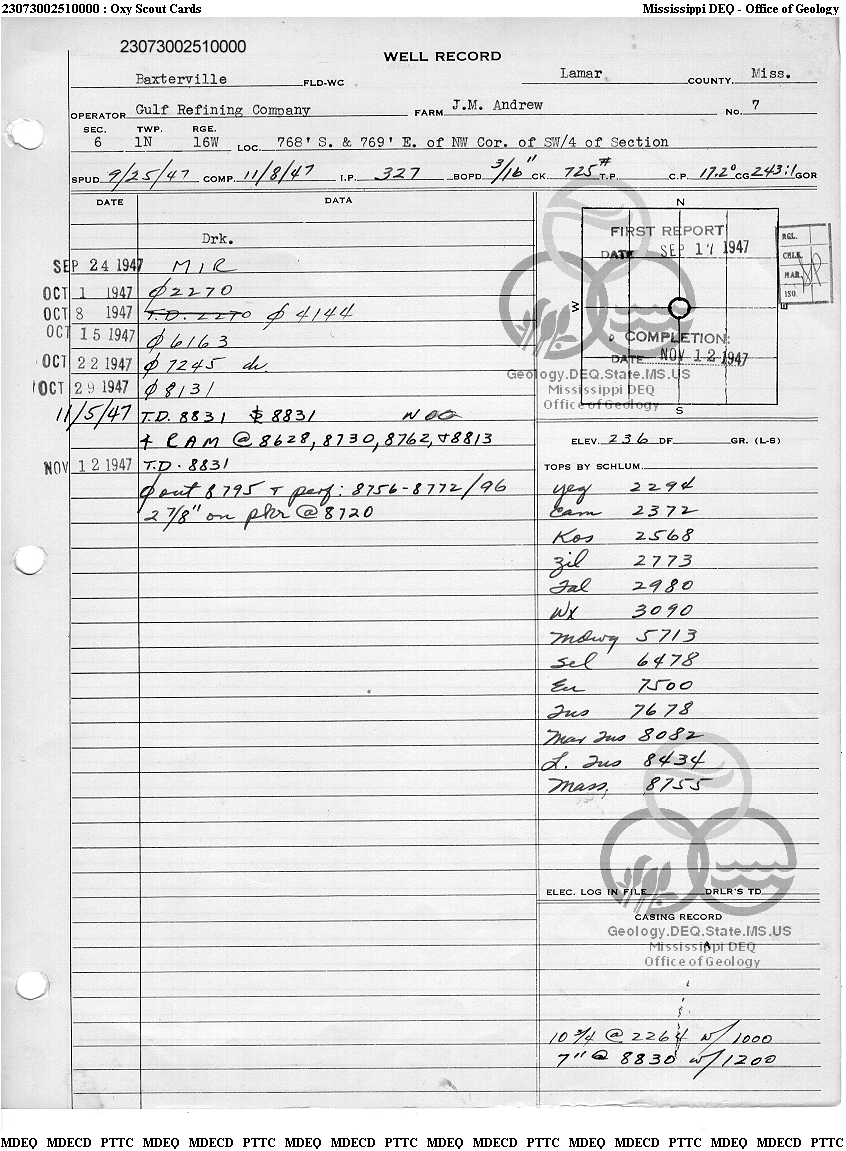 23073002510000 : Oxy Scout Cards Mississippi DEQ - Office of Geology
23073002510000
WELL RECORD
Baxterville FLD-WC Lamar COUNTY Miss.
OPERATOR Gulf Refining Company FARM J.M. Andrew No. 7
SEC. TWP. RGE.
6 1N 16W LOC. 768' S. & 769' E. of NW Cor. of SW/4 of Section
SPUD 9/25/47 COMP. 11/8/47 I.P. 327 BOPD 3/16" CK 725# T.P. C.P. 17.2° CG 243:1 GOR
DATE DATA
Drk.
SEP 24 1947 MIR
OCT 1 1947 Ø2270
OCT 8 1947 T.D. 2270 Ø 4144
OCT 15 1947 Ø6163
OCT 22 1947 Ø7245 dr.
OCT 29 1947 Ø8131
11/5/47 T.D. 8831 8831 WOO
+ RAM @ 8628, 8730, 8762, +8813
NOV 12 1947 T.D. 8831
Ø out 8795 + perf: 8756-8772/96
2 7/8" on pkr @ 8720
N
FIRST REPORT
DATE SEP 17 1947
W
E
COMPLETION:
DATE NOV 12 1947
S
RGL.
CHLK.
MAR.
ISO.
Geology.DEQ.State.MS.US
Mississippi DEQ
Office of Geology
ELEV. 236 DF GR. (L-S)
TOPS BY SCHLUM.
Yeg 2294
Cam 2372
Kos 2568
Zil 2773
Tal 2980
Wx 3090
Mdwy 5713
Sel 6478
Eu 7500
Tus 7678
Mar Tus 8082
L. Tus 8434
Mass. 8755
ELEC. LOG IN FILE DRLR'S TD
CASING RECORD
Geology.DEQ.State.MS.US
Mississippi DEQ
Office of Geology
10 3/4 @ 2264 w/1000
7" @ 8830 w/1200
MDEQ MDECD PTTC MDEQ MDECD PTTC MDEQ MDECD PTTC MDEQ MDECD PTTC MDEQ MDECD PTTC MDEQ MDECD PTTC